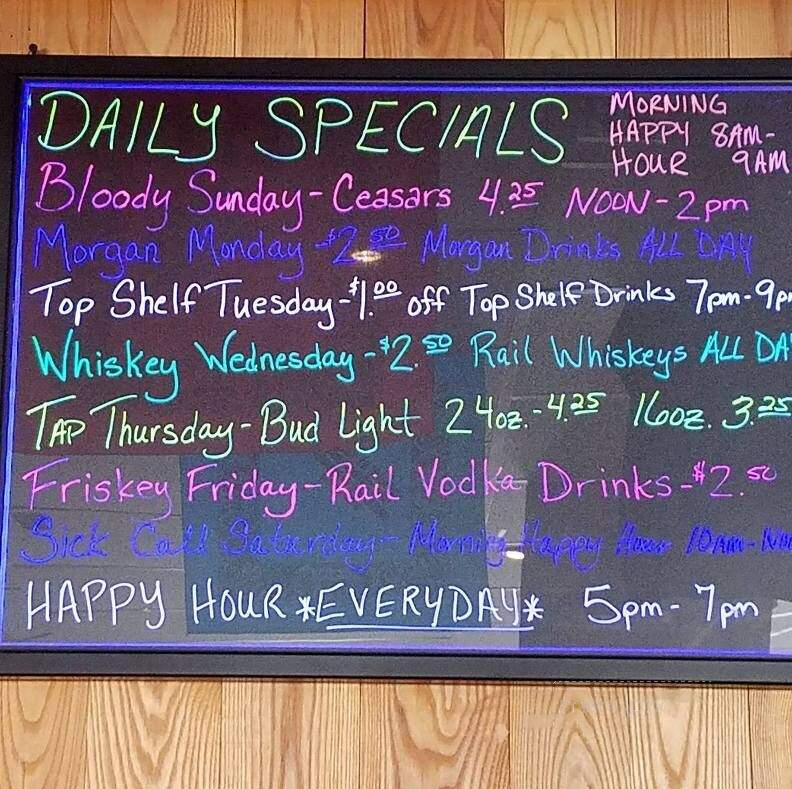 DAILY SPECIALS
MORNING
HAPPY 8AM-
HOUR 9AM
Bloody Sunday - Ceasars 4.25 NOON - 2pm
Morgan Monday - $2.50 Morgan Drinks ALL DAY
Top Shelf Tuesday - $1.00 off Top Shelf Drinks 7pm - 9p
Whiskey Wednesday - $2.50 Rail Whiskeys ALL DA
TAP Thursday - Bud Light 24oz. - 4.25 16oz. 3.25
Friskey Friday - Rail Vodka Drinks - $2.50
Sick Call Saturday - Morning Happy Hour 10AM -
HAPPY HOUR *EVERYDAY* 5pm - 7pm